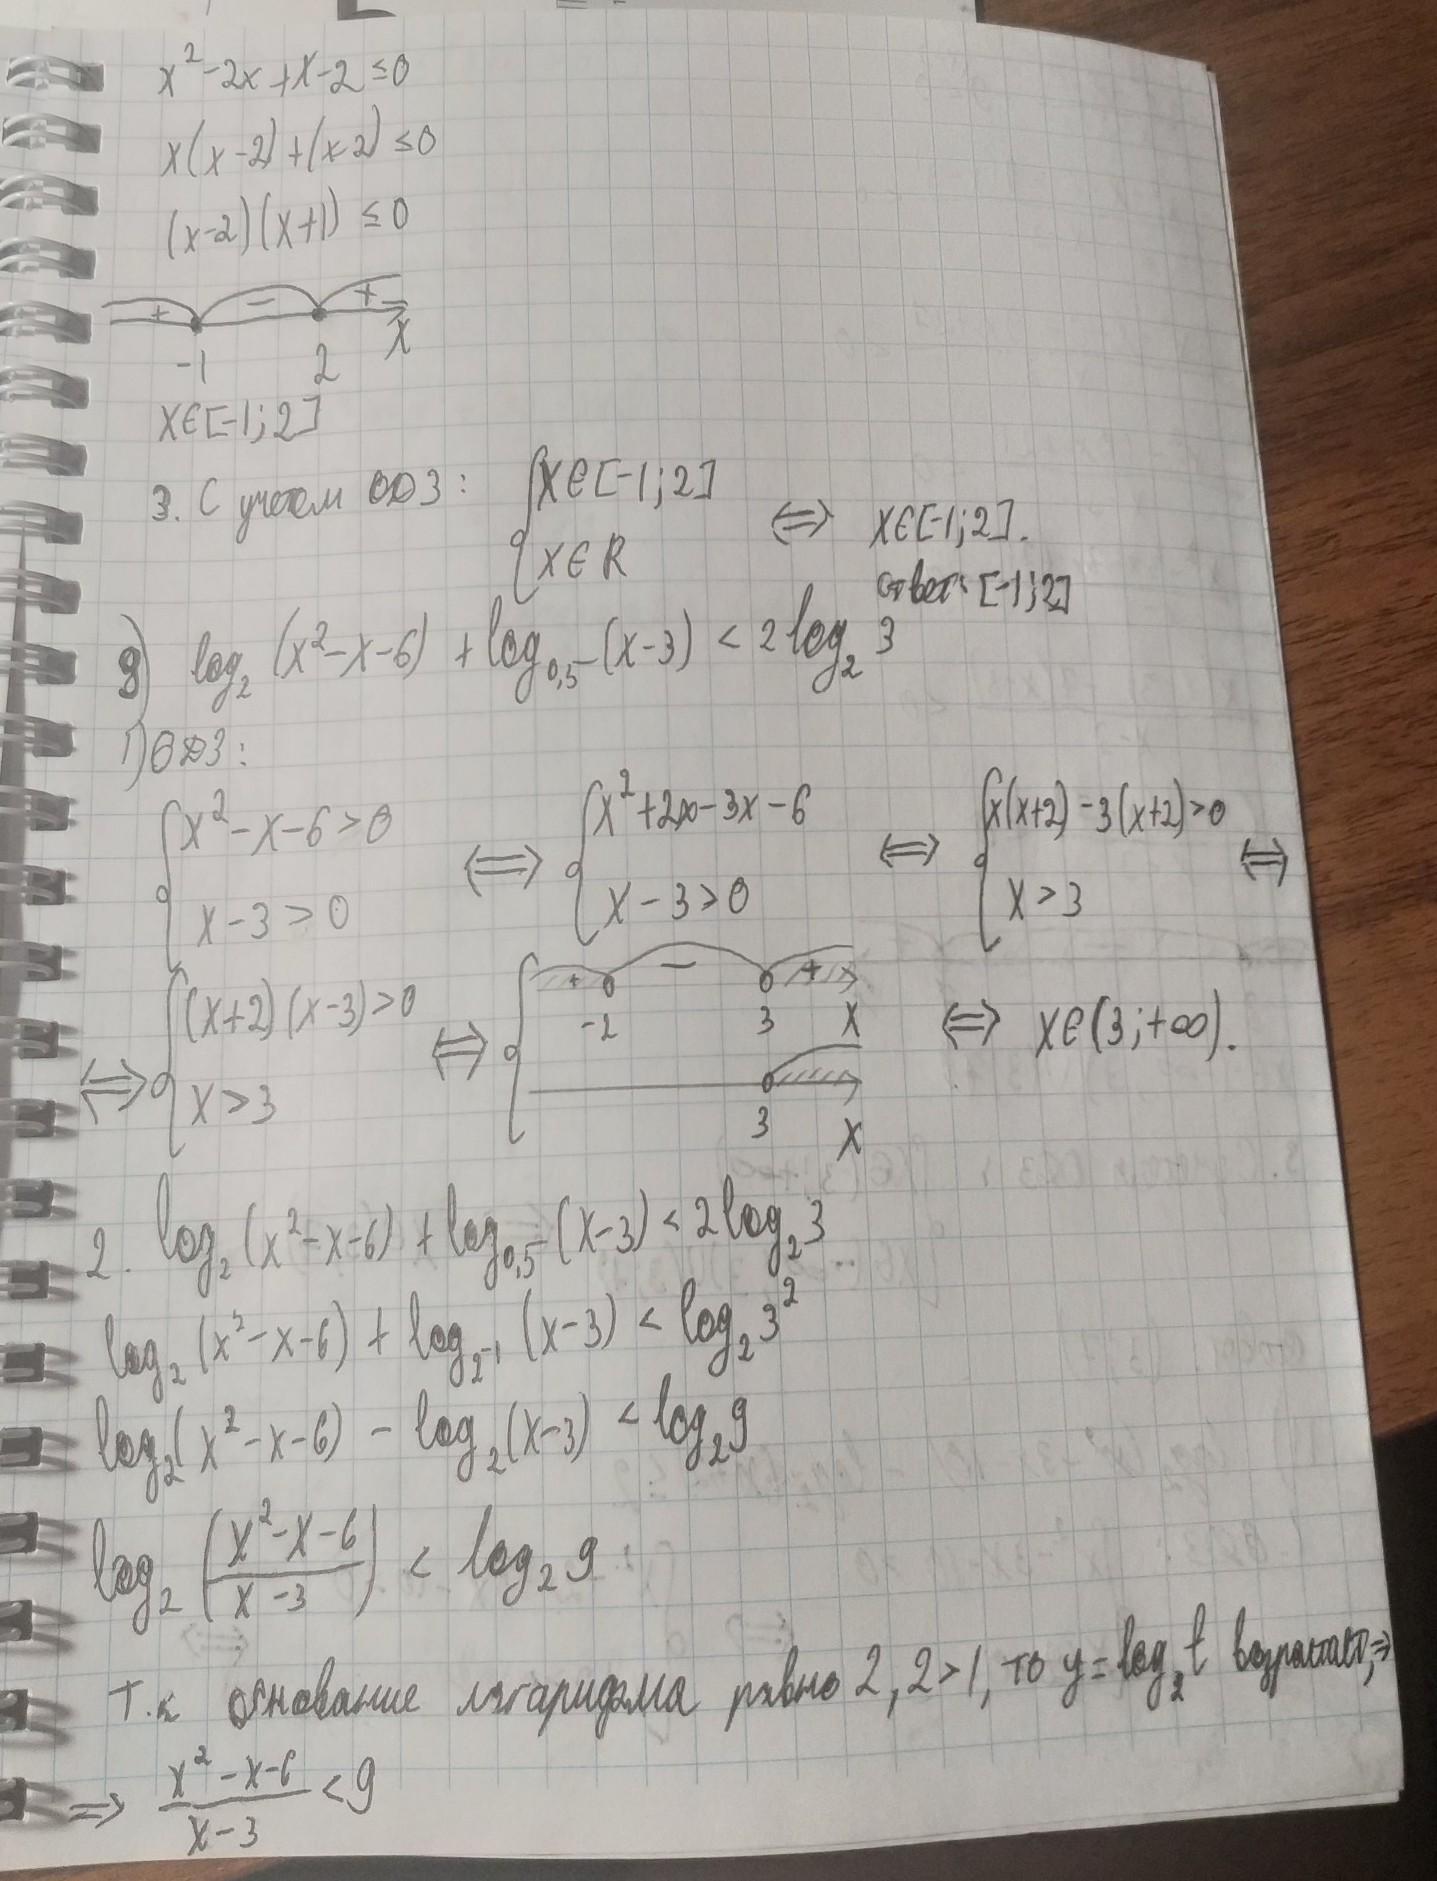 x²-2x+x-2≤0
x(x-2)+(x-2)≤0
(x-2)(x+1)≤0
+ - +
-1 2 x
x∈[-1;2]
3. С учетом ОДЗ: { x∈[-1;2] x∈R ⇔ x∈[-1;2].
Ответ: [-1;2]
9) log₂(x²-x-6)+log₀,₅(x-3)<2log₂3
1) ОДЗ:
{ x²-x-6>0 x-3>0 ⇔ { x²+2x-3x-6 x-3>0 ⇔ { x(x+2)-3(x+2)>0 x>3 ⇔
⇔ { (x+2)(x-3)>0 x>3 ⇔ { + - + -2 3 x 3 x ⇔ x∈(3;+∞).
2. log₂(x²-x-6)+log₀,₅(x-3)<2log₂3
log₂(x²-x-6)+log₂₋₁(x-3)<log₂3²
log₂(x²-x-6)-log₂(x-3)<log₂9
log₂((x²-x-6)/(x-3))<log₂9
Т.к основание логарифма равно 2, 2>1, то y=log₂t возрастает, ⇒
⇒ (x²-x-6)/(x-3)<9